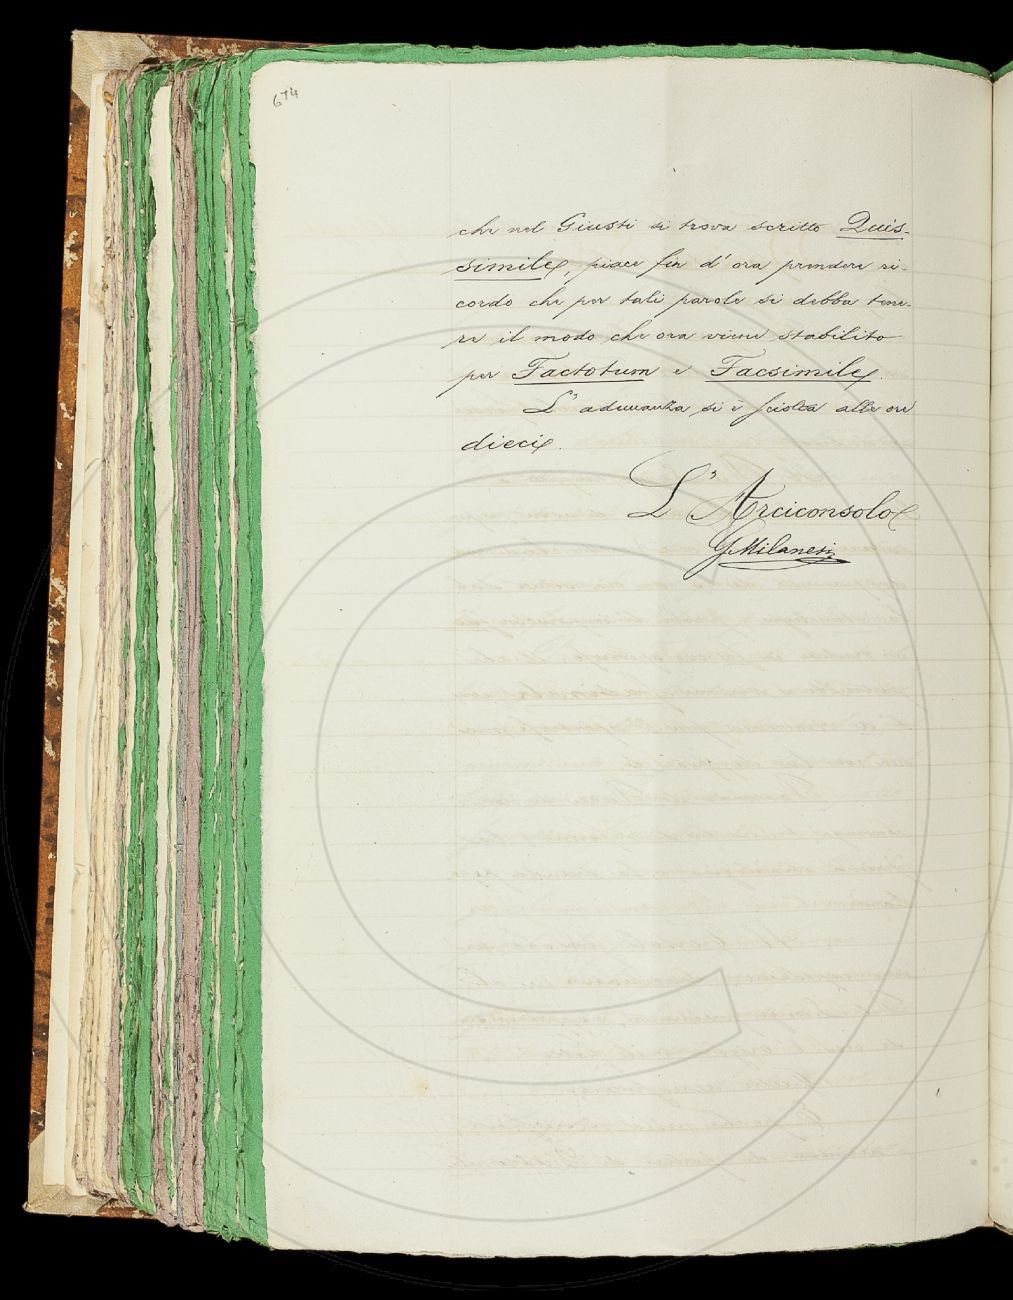 674
che nel Giusti si trova scritto Quis-
simile, piace fin d'ora prendere ri-
cordo che per tali parole si debba tene-
re il modo che ora viene stabilito
per Factotum e Facsimile.
L'adunanza si è sciolta alle ore
dieci.
L'Arciconsolo
G Milanesi